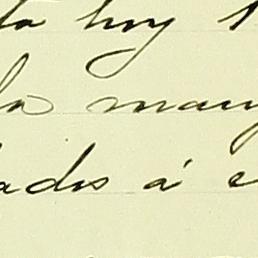 ta hoy
la many
ados á e